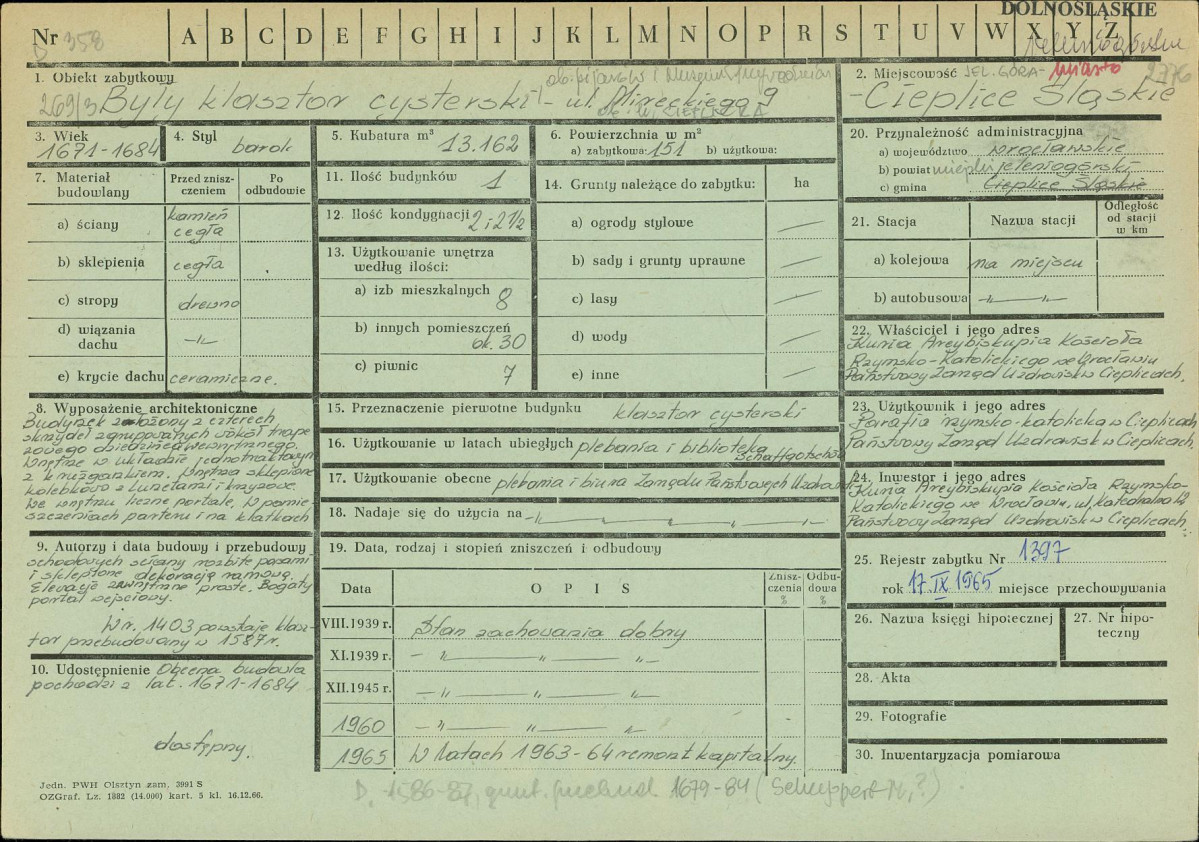 DOLNOŚLĄSKIE
Nr 358
A B C D E F G H I J K L M N O P R S T U V W X Y Z
1. Obiekt zabytkowy
269/3 Były klasztor cysterski - ul. Mireckiego 9
2. Miejscowość JEL. GÓRA- miasto 2776
-Cieplice Śląskie
3. Wiek
1671-1684
4. Styl
barok
5. Kubatura m³
13.162
6. Powierzchnia w m²
a) zabytkowa: 151 b) użytkowa:
7. Materiał budowlany
Przed zniszczeniem
Po odbudowie
a) ściany
kamień
cegła
b) sklepienia cegła
c) stropy drewno
d) wiązania dachu -"-
e) krycie dachu ceramiczne.
8. Wyposażenie architektoniczne
Budynek założony z czterech
skrzydeł zgrupowanych wokół trape
zowego dziedzińca wewnętrznego.
Wnętrze w układzie jednotraktowym
z krużgankiem. Wnętrza sklepione
kolebkowo z lunetami i krzyżowo.
We wnętrzu liczne portale. W pomie
szczeniach parteru i na klatkach
9. Autorzy i data budowy i przebudowy
schodowych ściany rozbite pasami
i sklepione dekoracją ramową.
Elewacje zewnętrzne proste. Bogaty
portal wejściowy.
W r. 1403 powstaje klasz-
tor przebudowany w 1587 r.
10. Udostępnienie Obecna budowla
pochodzi z lat. 1671-1684
dostępny.
11. Ilość budynków 1
12. Ilość kondygnacji 2 i 2 1/2
13. Użytkowanie wnętrza według ilości:
a) izb mieszkalnych 8
b) innych pomieszczeń
ok. 30
c) piwnic 7
14. Grunty należące do zabytku: ha
a) ogrody stylowe —
b) sady i grunty uprawne —
c) lasy —
d) wody —
e) inne —
15. Przeznaczenie pierwotne budynku klasztor cysterski
16. Użytkowanie w latach ubiegłych plebania i biblioteka
Schaffgotschów
17. Użytkowanie obecne plebania i biura Zarządu Państwowych Uzdrowisk
18. Nadaje się do użycia na -"-
19. Data, rodzaj i stopień zniszczeń i odbudowy
Data
O P I S
Zniszczenia %
Odbudowa %
VIII.1939 r. Stan zachowania dobry
XI.1939 r. -" " "-
XII.1945 r. -" " "-
1960 -" " "- -
1965 W latach 1963-64 remont kapitalny.
20. Przynależność administracyjna
a) województwo wrocławskie
b) powiat miejski jeleniogórski
c) gmina Cieplice Śląskie
21. Stacja
Nazwa stacji
Odległość od stacji w km
a) kolejowa na miejscu
b) autobusowa -"-
22. Właściciel i jego adres
Kuria Arcybiskupia Kościoła
Rzymsko-Katolickiego we Wrocławiu
Państwowy Zarząd Uzdrowisk w Cieplicach.
23. Użytkownik i jego adres
Parafia rzymsko-katolicka w Cieplicach
Państwowy Zarząd Uzdrowisk w Cieplicach
24. Inwestor i jego adres
Kuria Arcybiskupia Kościoła Rzymsko-
Katolickiego we Wrocławiu, ul. Katedralna 12
Państwowy Zarząd Uzdrowisk w Cieplicach.
25. Rejestr zabytku Nr 1397
rok 17 IX 1965 miejsce przechowywania
26. Nazwa księgi hipotecznej
27. Nr hipoteczny
28. Akta
29. Fotografie
30. Inwentaryzacja pomiarowa
Jedn. PWH Olsztyn zam. 3991 S
OZGraf. Lz. 1882 (14.000) kart. 5 kl. 16.12.66.
D. 1586-87, gunt. przebud. 1679-84 (Schuppert M.?)